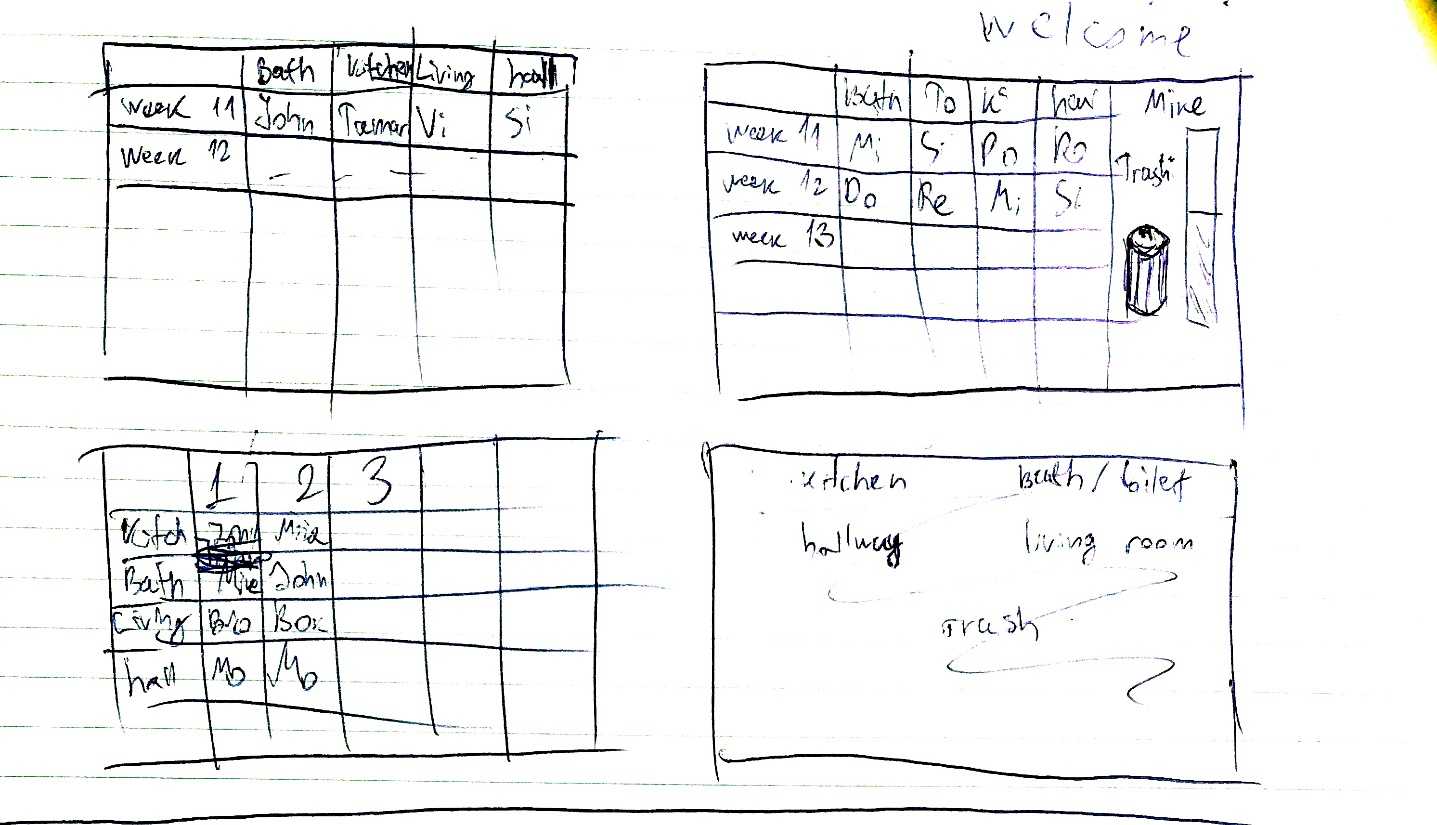 welcome
Bath Kitchen Living hall
week 11 John Tamar Vi Si
Week 12
Bath To Ki hal Mike
week 11 Mi Si Do Ro
week 12 Do Re Mi Si
Trash
week 13
1 2 3
Kitch Mike
Bath Mike John
Living Bro Box
hall Mo Mo
kitchen bath / toilet
hallway living room
Trash